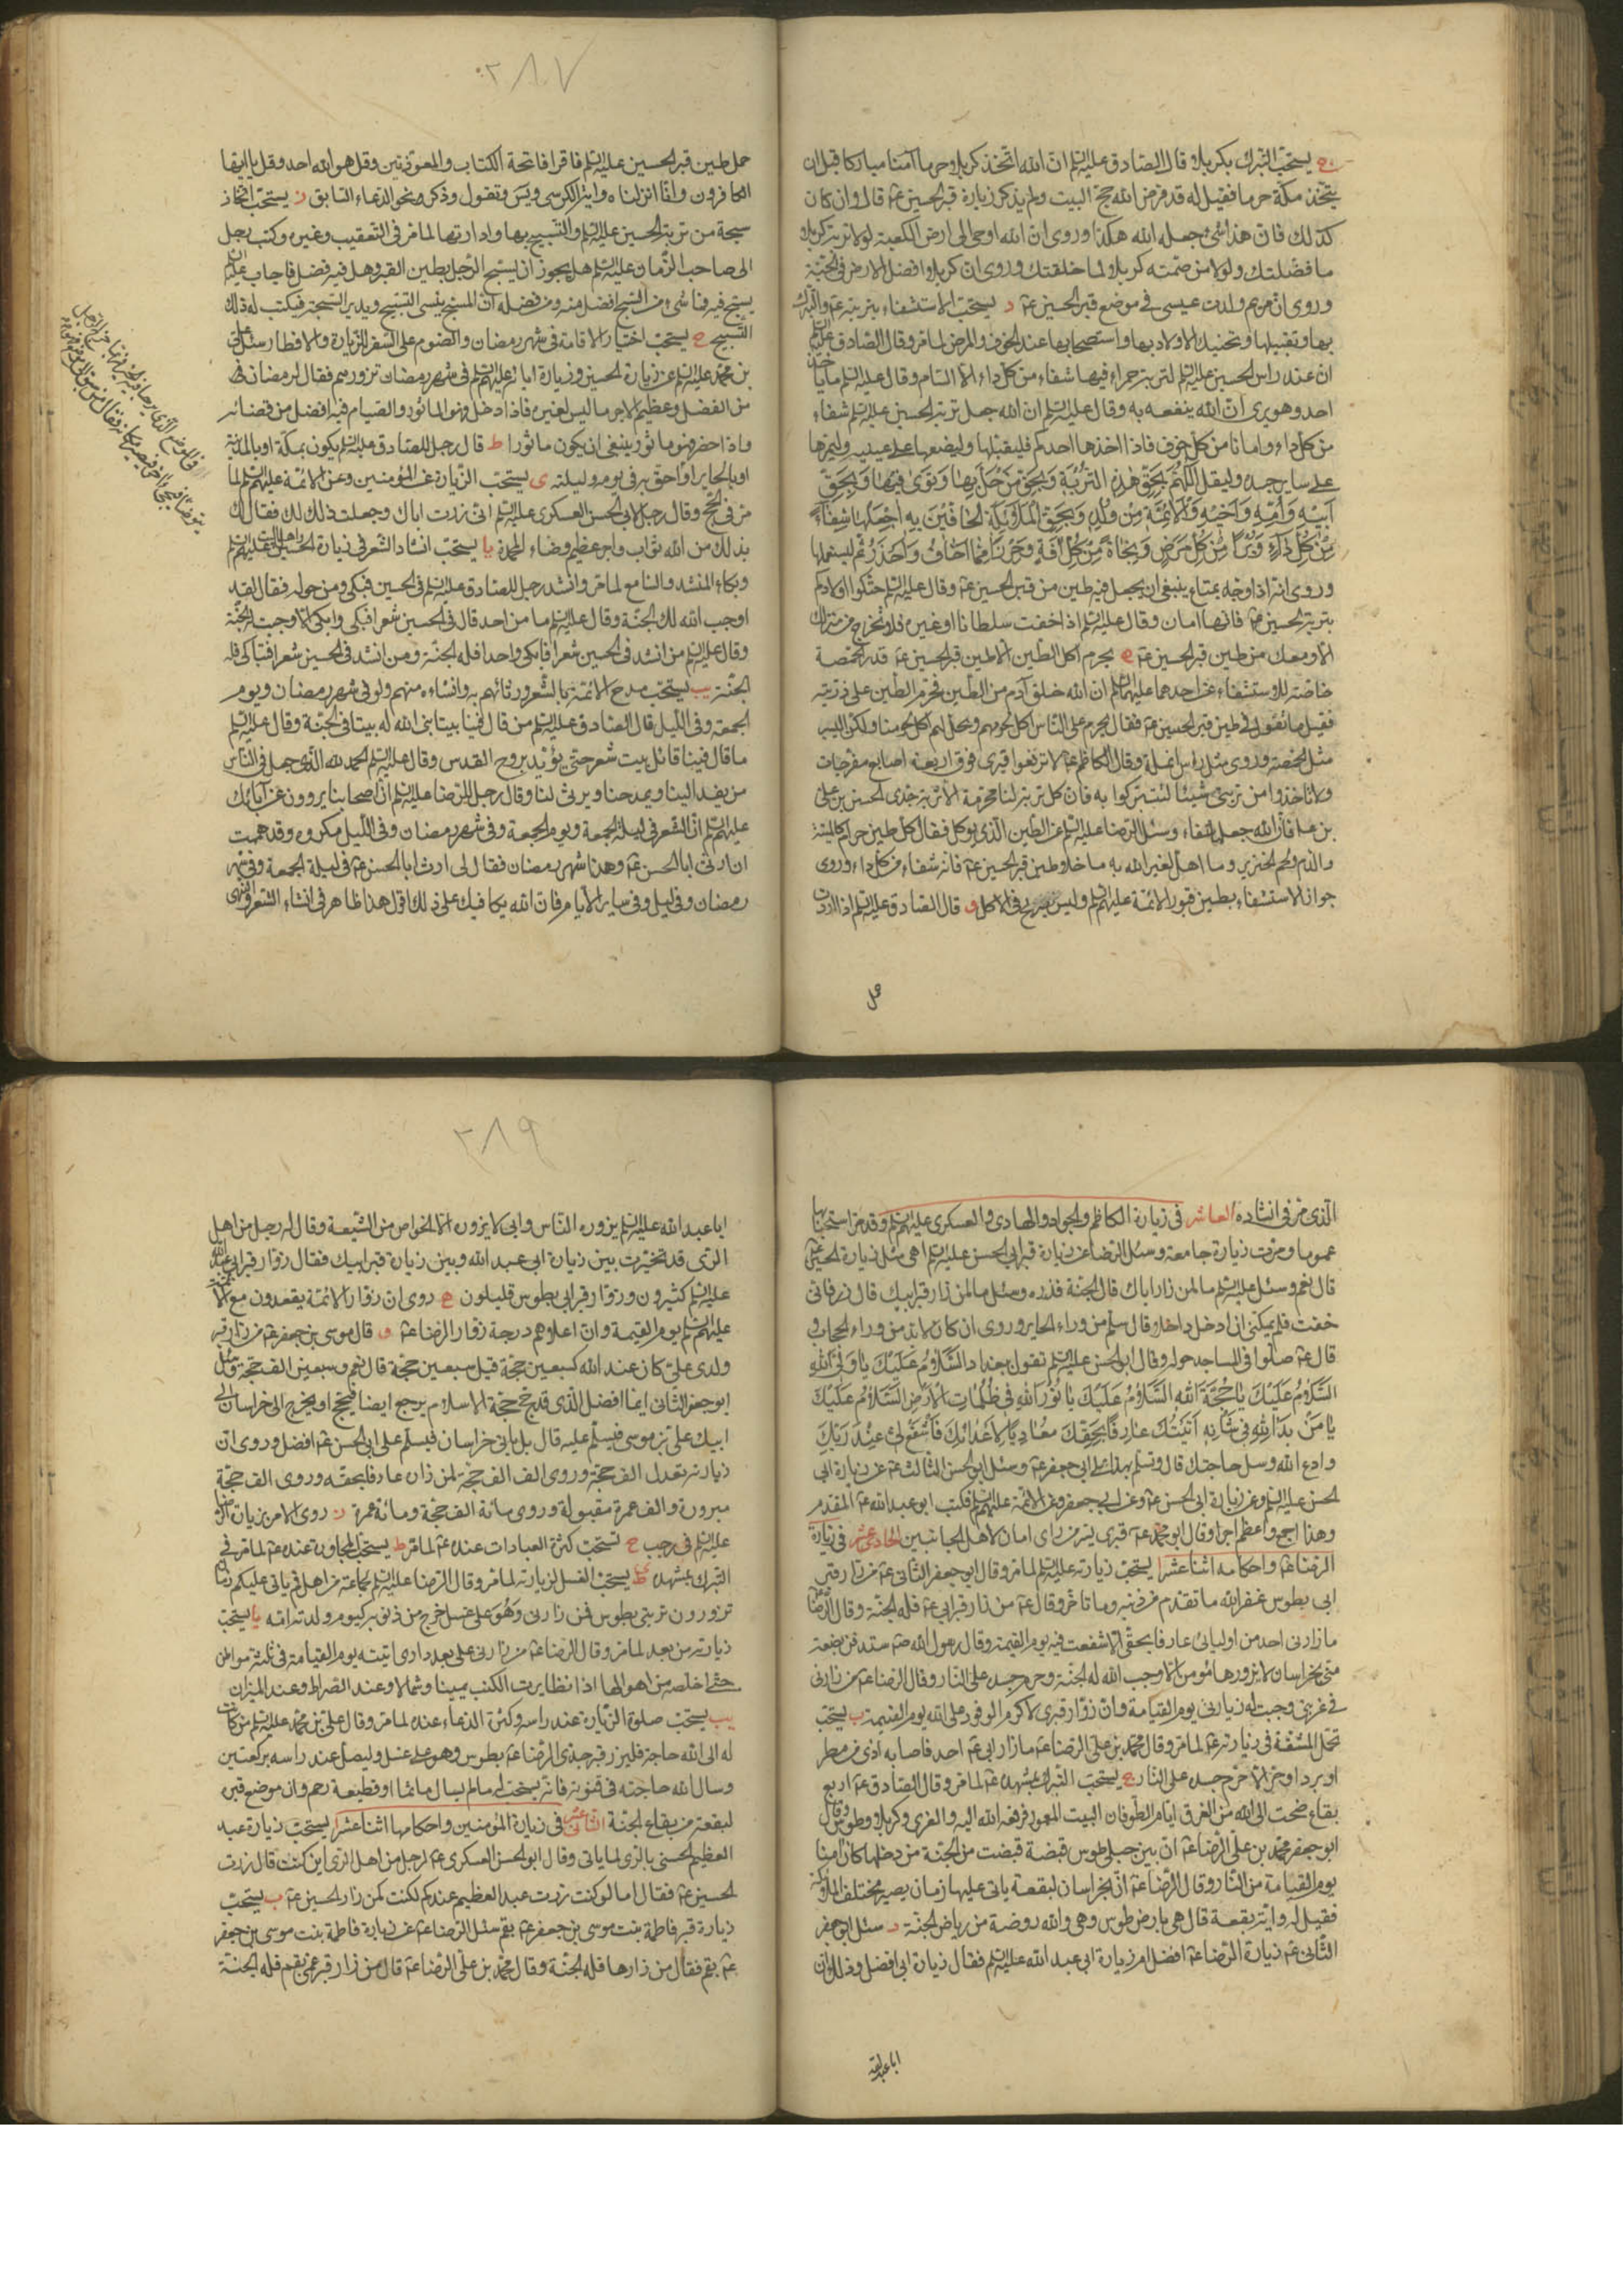 ج يستحبّ التبرك بكربلا قال الصادق عليه السلم انّ الله اتّخذ كربلا حرما آمنا مباركا قبل ان
يتخذ مكة حرما فقيل له قد فرض الله حجّ البيت ولم يذكر زيارة قبر الحسين عم قال وان كان
كذلك فان هذا شئ جعله الله هكذا وروى انّ الله اوحى الى ارض الكعبة لولا تربة كربلا
ما فضّلتك ولولا من ضمّنته كربلا لما خلقتك وروى ان كربلا افضل الارض فى الجنّة
وروى انّ مريم ولدت عيسى فى موضع قبر الحسين عم د يستحبّ الاستشفاء بتربته عم والتبرك
بها وتقبيلها وتحنيك الاولاد بها واستصحابها عند الخوف والمرض لما مرّ وقال الصادق عليه السلم
ان عند راس الحسين عليه السلم لتربة حمراء فيها شفاء من كل داء الّا السام وقال عليه السلم ما ياخذه
احد وهو يرى انّ الله ينفعه به وقال عليه السلم ان الله جعل تربة الحسين عليه السلم شفاء
من كل داء وامانا من كل خوف فاذا اخذها احدكم فليقبّلها وليضعها على عينيه وليمرّها
على ساير جسده وليقل اللّهمّ بحقّ هذه التربة وبحقّ من حلّ بها وثوى فيها وبحقّ
ابيه وامّه واخيه والائمّة من ولده وبحقّ الملائكة الحافّين به الّا جعلتها شفاء
من كلّ داء وبرءا من كلّ مرض ونجاة من كلّ آفة وحرزا ممّا اخاف واحذر ثم ليستعملها
وروى انه اذا وجّه بمتاع ينبغى ان يجعل فيه طين من قبر الحسين عم وقال عليه السلم حنّكوا اولادكم
بتربة الحسين عم فانها امان وقال عليه السلم اذا خفت سلطانا او غيره فلا تخرج من منزلك
الّا ومعك من طين قبر الحسين عم ه يحرم اكل الطين الّا طين قبر الحسين عم قدر الحمّصة
خاصّة للاستشفاء عن احدهما عليهما السلم ان الله خلق آدم من الطين فحرم الطين على ذرّيته
فقيل ما تقول فى طين قبر الحسين عم فقال يحرم على الناس اكل لحومهم ويحلّ لهم اكل لحومنا ولكن اليسير
مثل الحمّصة وروى مثل راس انملة وقال الكاظم عم لا ترفعوا قبرى فوق اربعة اصابع مفرجات
ولا تاخذوا من تربتى شيئا لتتبركوا به فان كل تربة لنا محرمة الّا تربة جدى الحسين بن على
بن عم فان الله جعلها شفاء وسئل الرضا عليه السلم عن الطين الذى يوكل فقال كل طين حرام كالميتة
والدم ولحم الخنزير وما اهل لغير الله به ما خلا طين قبر الحسين عم فانه شفاء من كل داء وروى
جواز الاستشفاء بطين قبور الائمة عليهم السلم وليس بصريح فى الاكل و قال الصادق عليه السلم اذا اردت
حمل
٢٨٧
حمل طين قبر الحسين عليه السلم فاقرا فاتحة الكتاب والمعوذتين وقل هو الله احد وقل يا ايها
الكافرون وانّا انزلناه واية الكرسى ويس وتقول وذكر نحو الدعاء السابق ز يستحبّ اتخاذ
سبحة من تربة الحسين عليه السلم والتسبيح بها وادارتها لما مرّ فى التعقيب وغيره وكتب رجل
الى صاحب الزمان عليه السلم هل يجوز ان يسبّح الرجل بطين القبر وهل فيه فضل فاجاب عليه السلم
يسبّح فيه فما شئ من السبح افضل منه ومن فضله انّ المسبّح ينسى التسبيح ويدير السبحة فيكتب له ذلك
التسبيح ح يستحبّ اختيار الاقامة فى شهر رمضان والصوم على السفر للزيارة والافطار سئل على
بن محمد عليه السلم عن زيارة الحسين وزيارة ابائه عليهم السلم فى شهر رمضان نزورهم فقال لرمضان
من الفضل وعظيم الاجر ما ليس لغيره فاذا دخل فهو الماثور والصيام فيه افضل من قضائه
واذا حضر فهو ماثور ينبغى ان يكون ماثورا ط قال رجل للصادق عليه السلم يكون بمكة او بالمدينة
او بالحاير
ى يستحبّ الزيارة عن المؤمنين وعن الائمة عليهم السلم لما
مرّ فى الحجّ وقال رجل لابى الحسن العسكرى عليه السلم انى زرت اباك وجعلت ذلك لك فقال لك
بذلك من الله ثواب واجر عظيم ومنّا المحمدة يا يستحبّ انشاد الشعر فى زيارة الحسين واهل البيت عليهم السلم
وبكاء المنشد والسامع لما مرّ وانشد رجل للصادق عليه السلم فى الحسين فبكى ومن حوله فقال لقد
اوجب الله لك الجنّة وقال عليه السلم ما من احد قال فى الحسين شعرا فبكى وابكى الّا وجبت له الجنّة
وقال عليه السلم من انشد فى الحسين شعرا فابكى واحدا فله الجنّة ومن انشد فى الحسين شعرا فتباكى فله
الجنّة يب يستحبّ مدح الائمة بالشعر ورثائهم به وانشاءه منهم ولو فى شهر رمضان ويوم
الجمعة وفى الليل قال الصادق عليه السلم من قال فينا بيتا بنى الله له بيتا فى الجنّة وقال عليه السلم
ما قال فينا قائل بيت شعر حتى يؤيّد بروح القدس وقال عليه السلم الحمد لله الذى جعل فى الناس
من يفد الينا ويمدحنا ويرثى لنا وقال رجل للرضا عليه السلم انّ اصحابنا يروون عن آبائك
عليهم السلم انّ الشعر فى ليلة الجمعة ويوم الجمعة وفى شهر رمضان وفى الليل مكروه وقد هممت
ان ارثى ابا الحسن عم وهذا شهر رمضان فقال لى ارث ابا الحسن عم فى ليلة الجمعة وفى شهر
رمضان وفى الليل وفى ساير الايام فان الله يكافيك على ذلك اقول هذا ظاهر فى انشاء الشعر والنهى
الّذى مرّ فى انشاده العاشر فى زيارة الكاظم والجواد والهادى والعسكرى عليهم السلم وقد مرّ استحبابها
عموما ومرّت زيارة جامعة وسئل الرضا عن زيارة قبر ابى الحسن عليه السلم اهى مثل زيارة الحسين عم
قال نعم وسئل عليه السلم ما لمن زار اباك قال الجنّة فزره وسئل ما لمن زار قبر ابيك قال زره فانى
خفت فلم يمكنّى ان ادخل داخلا قال سلّم من وراء الحاير وروى ان كان لا بد من وراء الحجاب و
قال عم صلّوا فى المساجد حوله وقال ابو الحسن عليه السلم تقول ببغداد السّلام عليك يا ولىّ الله
السّلام عليك يا حجّة الله السّلام عليك يا نور الله فى ظلمات الارض السّلام عليك
يا من بدا لله فى شانه اتيتك عارفا بحقّك معاديا لاعدائك فاشفع لى عند ربّك
وادع الله وسل حاجتك قال وتسلّم بهذا على ابى جعفر عم وسئل ابو الحسن الثالث عم عن زيارة ابى
الحسين عليه السلم وعن زيارة ابى الحسن عم وعن ابى جعفر وعن الائمة عليهم السلم فكتب ابو عبد الله عم المقدم
وهذا اجمع واعظم اجرا وقال ابو محمد عم قبرى بسرّ من راى امان لاهل الجانبين الحادى عشر فى زيارة
الرضا عم واحكامه اثنا عشر ا يستحبّ زيارته عليه السلم لما مرّ وقال ابو جعفر الثانى عم من زار قبر
ابى بطوس غفر الله ما تقدّم من ذنبه وما تاخّر وقال عم من زار قبر ابى عم فله الجنّة وقال الرضا عم
ما زارنى احد من اوليائى عارفا بحقّى الّا شفعت فيه يوم القيمة وقال رسول الله صم ستدفن بضعة
منّى بخراسان لا يزورها مؤمن الّا اوجب الله له الجنّة وحرم جسده على النار وقال الرضا عم من زارنى
فى غربتى وجبت له زيارتى يوم القيامة وان زوّار قبرى لاكرم الوفود على الله يوم القيمة ب يستحبّ
تحمّل المشقّة فى زيارته عم لما مرّ وقال محمد بن على الرضا عم ما زار ابى عم احد فاصابه اذى من مطر
او برد او حرّ الّا حرّم جسده على النار ج يستحبّ التبرك بمشهده عم لما مرّ وقال الصادق عم اربع
بقاع ضجّت الى الله من الغرق ايّام الطوفان البيت المعمور فرفعه الله اليه والغرى وكربلا وطوس وقال
ابو جعفر محمد بن على الرضا عم انّ بين جبلى طوس قبضة قبضت من الجنّة من دخلها كان آمنا
يوم القيامة من النار وقال الرضا عم ان بخراسان لبقعة ياتى عليها زمان يصير مختلف الملائكة
فقيل له واية بقعة قال هى بارض طوس وهى والله روضة من رياض الجنّة د سئل ابو جعفر
الثانى عم زيارة الرضا عم افضل ام زيارة ابى عبد الله عليه السلم فقال زيارة ابى افضل وذلك انّ
ابا عبد الله
٢٨٩
ابا عبد الله عليه السلم يزوره الناس وابى لا يزوره الّا الخواص من الشيعة وقال له رجل من اهل
الرى قد تحيّرت بين زيارة ابى عبد الله وبين زيارة قبر ابيك فقال زوار قبر ابى عبد الله
عليه السلم كثيرون وزوّار قبر ابى بطوس قليلون ه روى ان زوّار الائمّة يقعدون مع الائمة
عليهم السلم يوم القيمة وانّ اعلاهم درجة زوّار الرضا عم و قال موسى بن جعفر عم من زار قبر
ولدى علىّ كان عند الله كسبعين حجّة قيل سبعين حجّة قال نعم وسبعين الف حجّة وسئل
ابو جعفر الثانى ايما افضل الّذى قد حجّ حجّة الاسلام يرجع ايضا فيحج او يخرج الى خراسان الى
ابيك على بن موسى فيسلّم عليه قال بل ياتى خراسان فيسلّم على ابى الحسن عم افضل وروى ان
زيارته تعدل الف حجّة وروى الف الف حجة لمن زاره عارفا بحقّه وروى الف حجّة
مبرورة والف عمرة مقبولة وروى مائة الف حجّة ومائة عمرة ز روى الامر بزيارة الرضا
عليه السلم فى رجب ح تستحبّ كثرة العبادات عنده عم لما مرّ ط يستحبّ المجاورة عنده عم لما مرّ فى
التبرك بمشهده ى يستحبّ الغسل لزيارته لما مرّ وقال الرضا عليه السلم لجماعة من اهل قم ياتى عليكم زمان
تزورون تربتى بطوس فمن زارنى وهو على غسل خرج من ذنوبه كيوم ولدته امّه يا يستحبّ
زيارته من بعد لما مرّ وقال الرضا عم من زارنى على بعد دارى اتيته يوم القيامة فى ثلثة مواطن
حتى اخلصه من اهوالها اذا تطايرت الكتب يمينا وشمالا وعند الصراط وعند الميزان
يب يستحبّ صلوة الزيارة عند راسه وكثرة الدعاء عنده لما مرّ وقال على بن محمد عليه السلم من كانت
له الى الله حاجة فليزر قبر جدى الرضا عم بطوس وهو على غسل وليصلّ عند راسه ركعتين
وسال الله حاجته فى قنوته فانه يستجيب له ما لم يسال ماثما او قطيعة رحم وان موضع قبره
لبقعة من بقاع الجنّة الثانى عشر فى زيارة المؤمنين واحكامها اثنا عشر ا يستحبّ زيارة عبد
العظيم الحسنى بالرى لما ياتى وقال ابو الحسن العسكرى عم لرجل من اهل الرى اين كنت قال زرت
الحسين عم فقال اما لو كنت زرت عبد العظيم عندكم لكنت كمن زار الحسين عم ب يستحبّ
زيارة قبر فاطمة بنت موسى بن جعفر عم بقم سئل الرضا عم عن زيارة فاطمة بنت موسى بن جعفر
عم بقم فقال من زارها فله الجنّة وقال محمد بن على الرضا عم قال من زار قبر عمتى بقم فله الجنّة